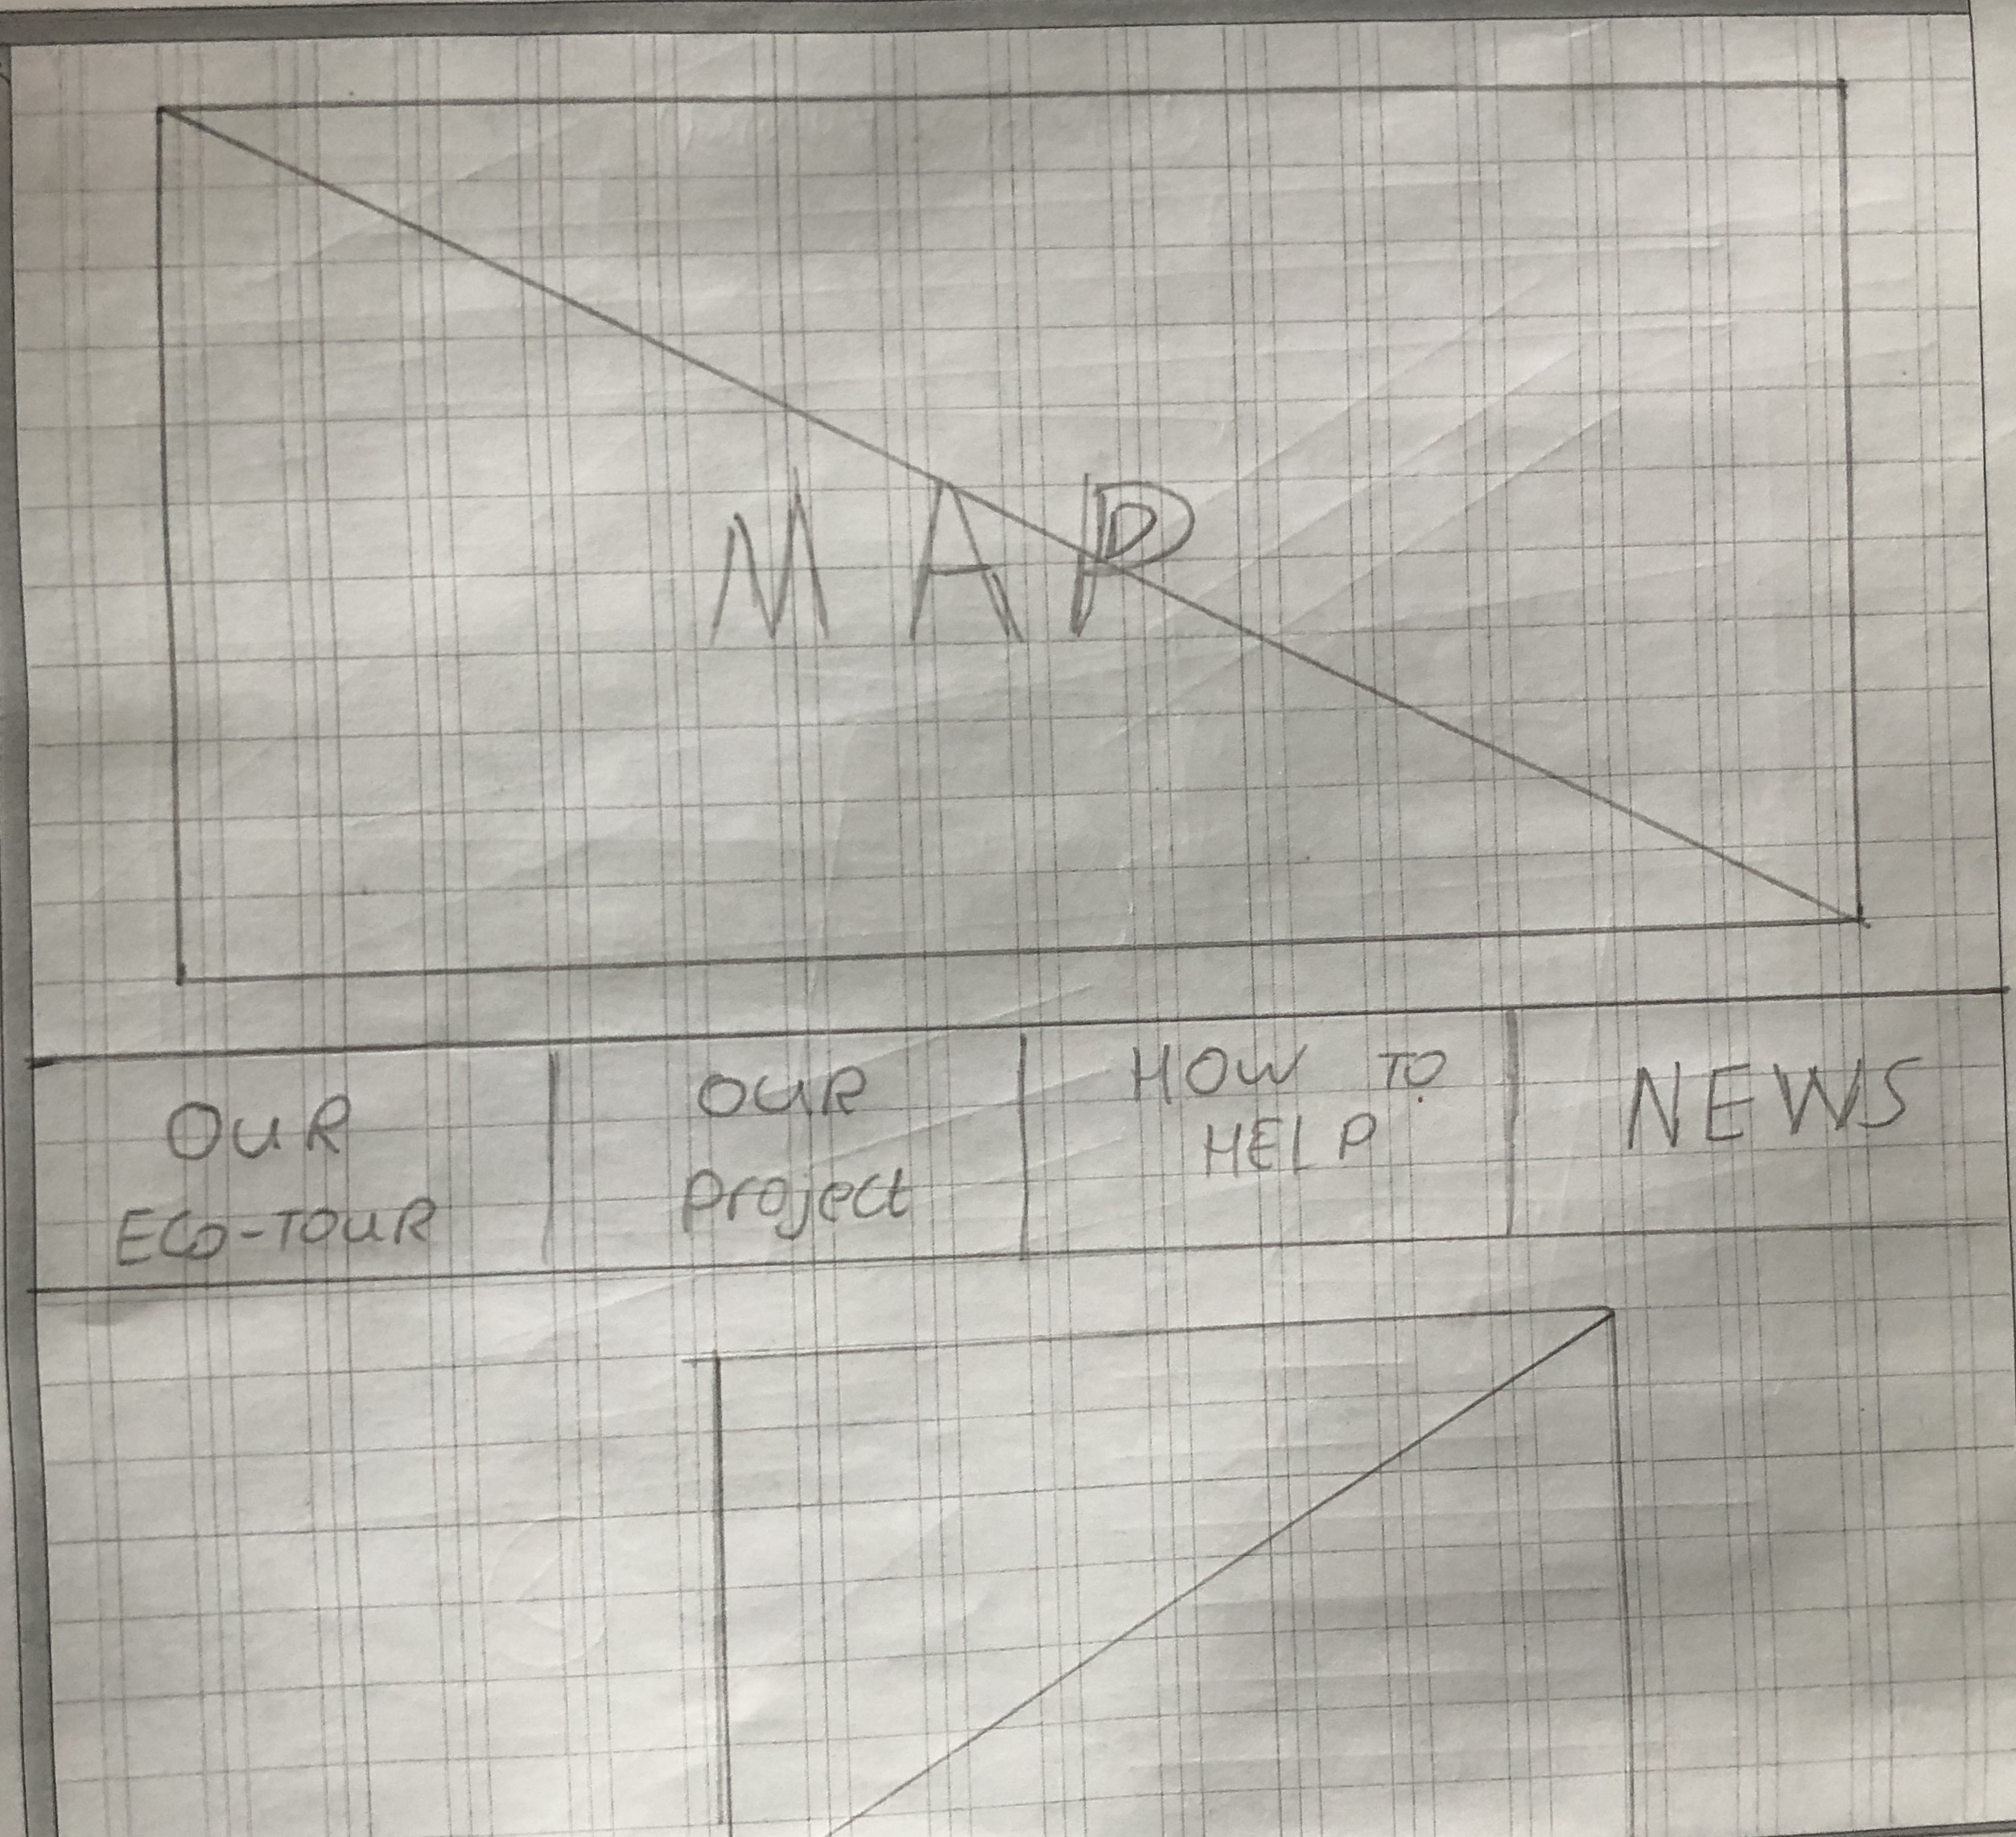 MAP
OUR
ECO-TOUR
OUR
project
HOW TO
HELP
NEWS